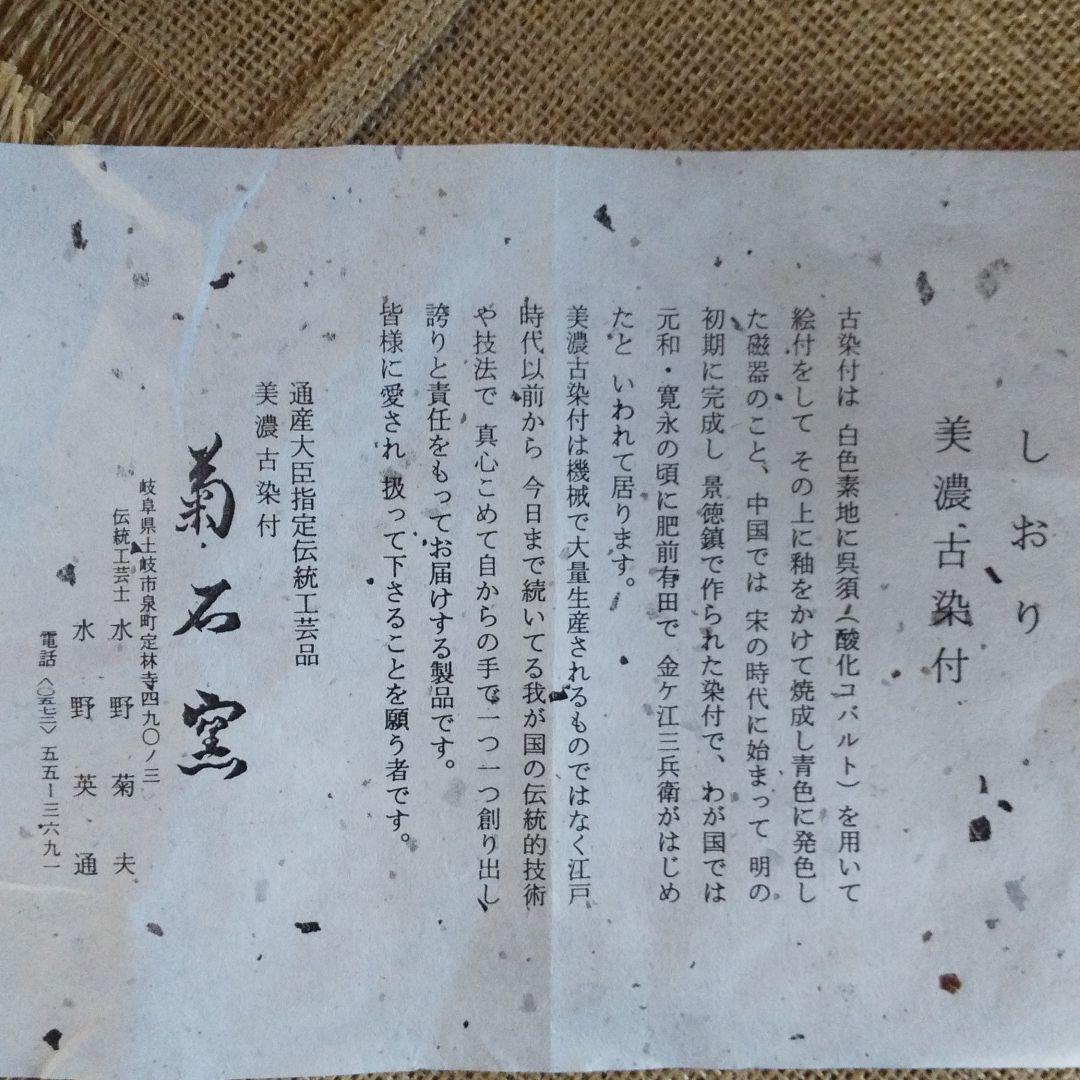 しおり
美濃古染付
古染付は 白色素地に呉須(酸化コバルト)を用いて
絵付をして その上に釉をかけて焼成し青色に発色し
た磁器のこと、中国では 宋の時代に始まって 明の
初期に完成し 景徳鎮で作られた染付で、わが国では
元和・寛永の頃に肥前有田で 金ケ江三兵衛がはじめ
たと いわれて居ります。
美濃古染付は機械で大量生産されるものではなく江戸
時代以前から 今日まで続いてる我が国の伝統的技術
や技法で 真心こめて自からの手で一つ一つ創り出し
誇りと責任をもってお届けする製品です。
皆様に愛され 扱って下さることを願う者です。
通産大臣指定伝統工芸品
美濃古染付
菊石窯
岐阜県土岐市泉町定林寺四九〇ノ三
伝統工芸士 水野菊夫
水野英通
電話〈〇五七二〉五五ー三六九一